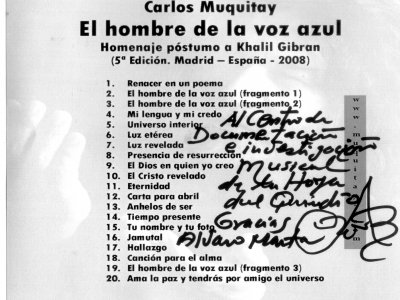 Carlos Muquitay
El hombre de la voz azul
Homenaje póstumo a Khalil Gibran
(5ª Edición. Madrid – España - 2008)
1. Renacer en un poema
2. El hombre de la voz azul (fragmento 1)
3. El hombre de la voz azul (fragmento 2)
4. Mi lengua y mi credo
5. Universo interior
6. Luz etérea
7. Luz revelada
8. Presencia de resurrección
9. El Dios en quien yo creo
10. El Cristo revelado
11. Eternidad
12. Carta para abril
13. Anhelos de ser
14. Tiempo presente
15. Tu nombre y tu foto
16. Jamutal
17. Hallazgo
18. Canción para el alma
19. El hombre de la voz azul (fragmento 3)
20. Ama la paz y tendrás por amigo el universo
Al Centro de
Documentación
e investigación
Musical
de la Hoya
del Quindío
Gracias
Alvaro